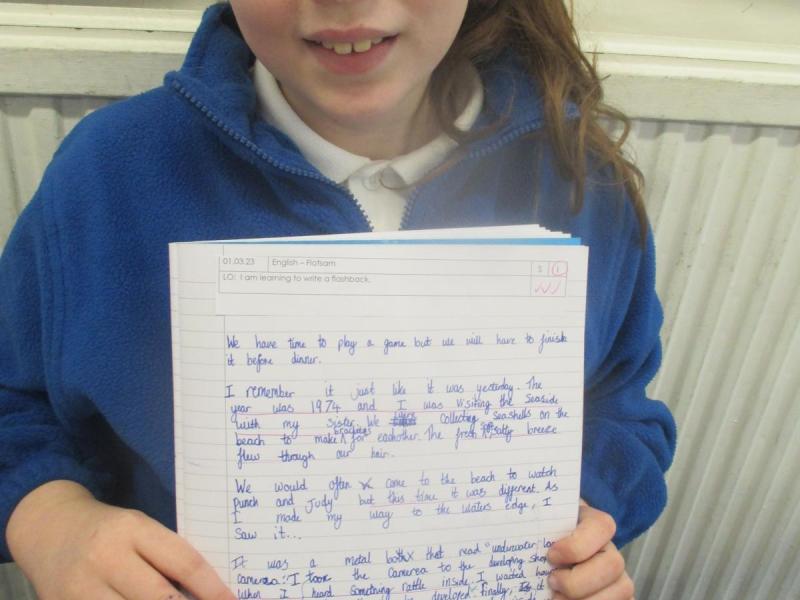 01.03.23 English – Flotsam S I
LO: I am learning to write a flashback.
We have time to play a game but we will have to finish
it before dinner.
I remember it just like it was yesterday. The
year was 1974 and I was visiting the Seaside
with my sister. We were collecting seashells on the
beach to make bracelets for eachother. The fresh, salty breeze
flew through our hair.
We would often come to the beach to watch
punch and Judy but this time it was different. As
I made my way to the waters edge, I
Saw it...
It was a metal that read "underwater
camera". I took the camera to the developing
When I heard something rattle inside. I waited
developed finally, it